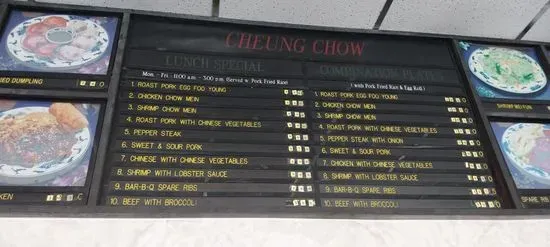 CHEUNG CHOW
LUNCH SPECIAL
Mon. - Fri. - 11:00 a.m. - 3:00 p.m. (Served w. Pork Fried Rice)
1. ROAST PORK EGG FOO YOUNG
2. CHICKEN CHOW MEIN
3. SHRIMP CHOW MEIN
4. ROAST PORK WITH CHINESE VEGETABLES
5. PEPPER STEAK
6. SWEET & SOUR PORK
7. CHINESE WITH CHINESE VEGETABLES
8. SHRIMP WITH LOBSTER SAUCE
9. BAR-B-Q SPARE RIBS
10. BEEF WITH BROCCOLI
COMBINATION PLATE
( with Pork Fried Rice & Egg Roll )
1. ROAST PORK EGG FOO YOUNG
2. CHICKEN CHOW MEIN
3. SHRIMP CHOW MEIN
4. ROAST PORK WITH CHINESE VEGETABLES
5. PEPPER STEAK WITH ONION
6. SWEET & SOUR PORK
7. CHICKEN WITH CHINESE VEGETABLES
8. SHRIMP WITH LOBSTER SAUCE
9. BAR-B-Q SPARE RIBS
10. BEEF WITH BROCCOLI
DUMPLING
SHRIMP MEI FUN
SPARE RIB